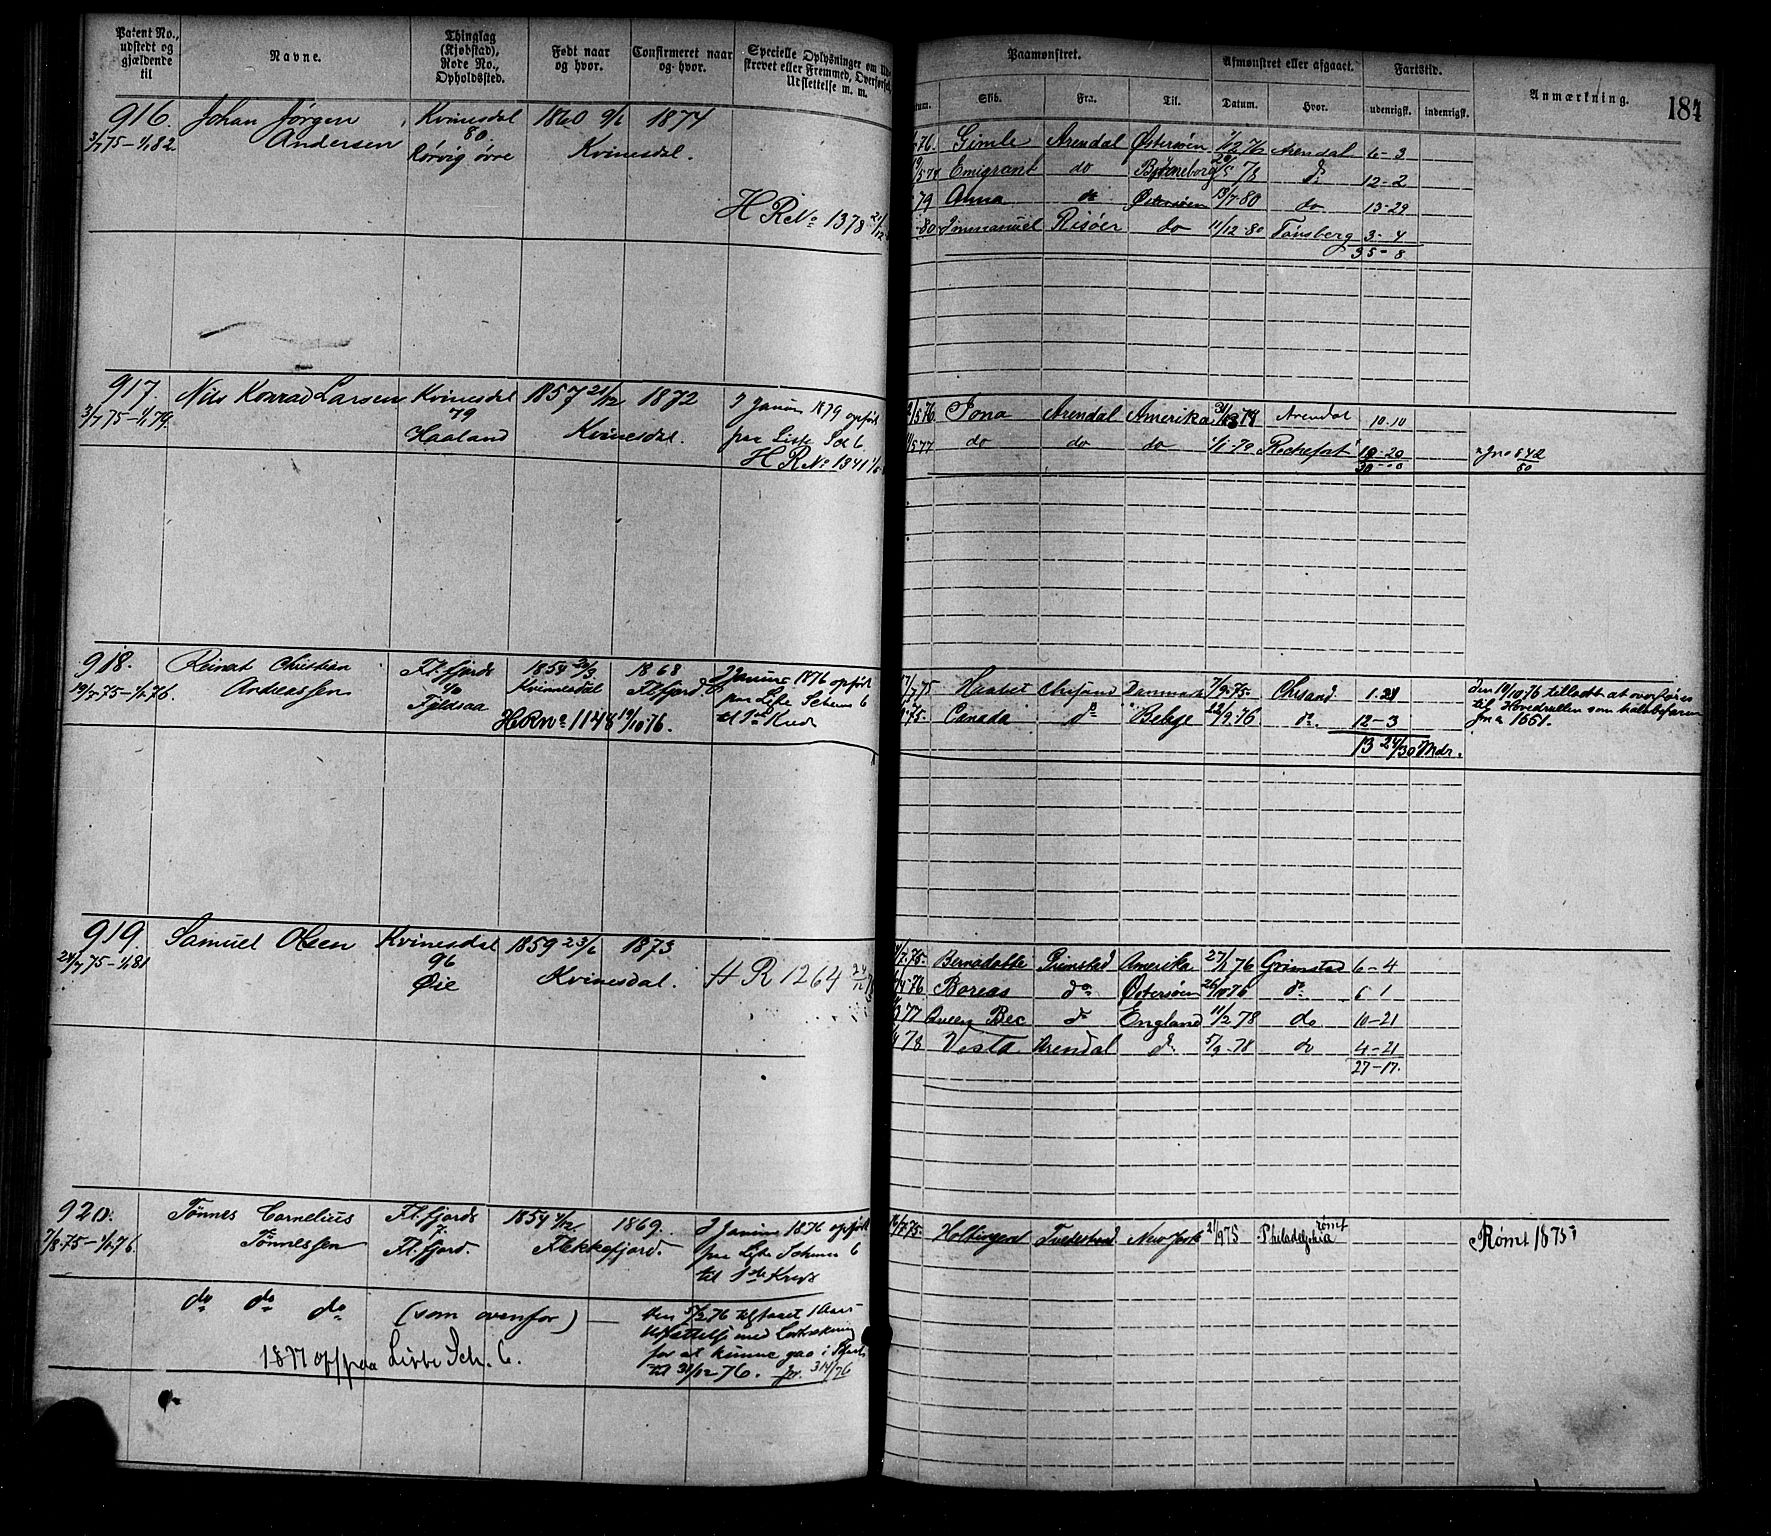 Patent No., udstedt og gjældende til
Navne.
Thinglag (Kjøbstad), Rode No., Opholdssted.
Født naar og hvor.
Confirmeret naar og hvor.
Specielle Oplysninger om
skrevet eller Fremmed,
Udslettelse m. m.
Paamønstret.
Skib.
Fra.
Til.
Afmønstret eller afgaaet.
Datum.
Hvor.
Fartstid.
udenrigsk.
indenrigsk.
Anmærkning.
184
916.
3/7 75 – 1/1 82
Johan Jørgen
Andersen
Kvinesdal
80
Rørvig øvre
1860 9/6
1874
Kvinesdal.
H R No 1378 21/12
76. Gimle Arendal Østersøen 1/12 76 Arendal 6–3
Emigrant do Bjørneborg 78 do 12–2
79 Anna do Østersøen 13/7 80 do 13–29
80 Immanuel Risøer do 11/12 80 Tønsberg 3–4
35–8
917.
3/7 75 – 1/1 79.
Nils Konrad Larsen
Kvinesdal
79
Haaland
1857 21/12
1872
Kvinesdal.
I Januar 1879 opført
paa Liste Sch 6
H R No 1841
5 76 Iona Arendal Amerika Arendal 10–10
5 77 do do do Rochefort 19–20
30–00
918.
19/7 75 – 1/1 76.
Reinert Christian
Andreassen
Fl. fjords
40
Fjeldsaa
1854 20/3
Kvinnesdal
1868
Fl.fjord
I Januar 1876 opført
paa Liste Schema 6
til 1ste Kreds
H R No 1148 19/10 76.
7 75 Chrsand Danmark 7/9 75. Chrsand 1–21
75. Canada do Belge 22/9 76 do 12–3
13 24/30 Mdr.
Den 19/10 76 tilladt at overføres
til Hovedrullen som halvbefaren
Jno 1661.
919.
24/7 75 – 1/1 81
Samuel Olsen
Kvinesdal
96
Øie
1859 23/6
1873
Kvinesdal.
H R 1264 24/12
7 75. Bernadotte Grimstad Amerika 27/1 76 Grimstad 6–4
76 Boreas do Østersøen 26/10 76 do 6 1
77 Queen Bee do England 11/2 78 do 10–21
78 Vesta Arendal do 5/9 78 do 4–21
27–17.
920.
7/8 75 – 1/1 76.
Tönnes Cornelius
Tönnessen
Fl. fjords
7.
Fl. fjord.
1854 4/12
1869.
Flekkefjord.
I Januar 1876 opført
paa Liste Schema 6
til 1ste Kreds
7 75. Hollingen Tvedestrand New York 21/9 75 Philadelphia
rømt
Rømt 1875
do do do (som ovenfor) —
1877 op paa Liste Sch. 6.
den 5/2 76 tilstaaet 1 Aars
Udsættelse med
for at kunne gaa i
til 31/12 76. Jr. 314/76